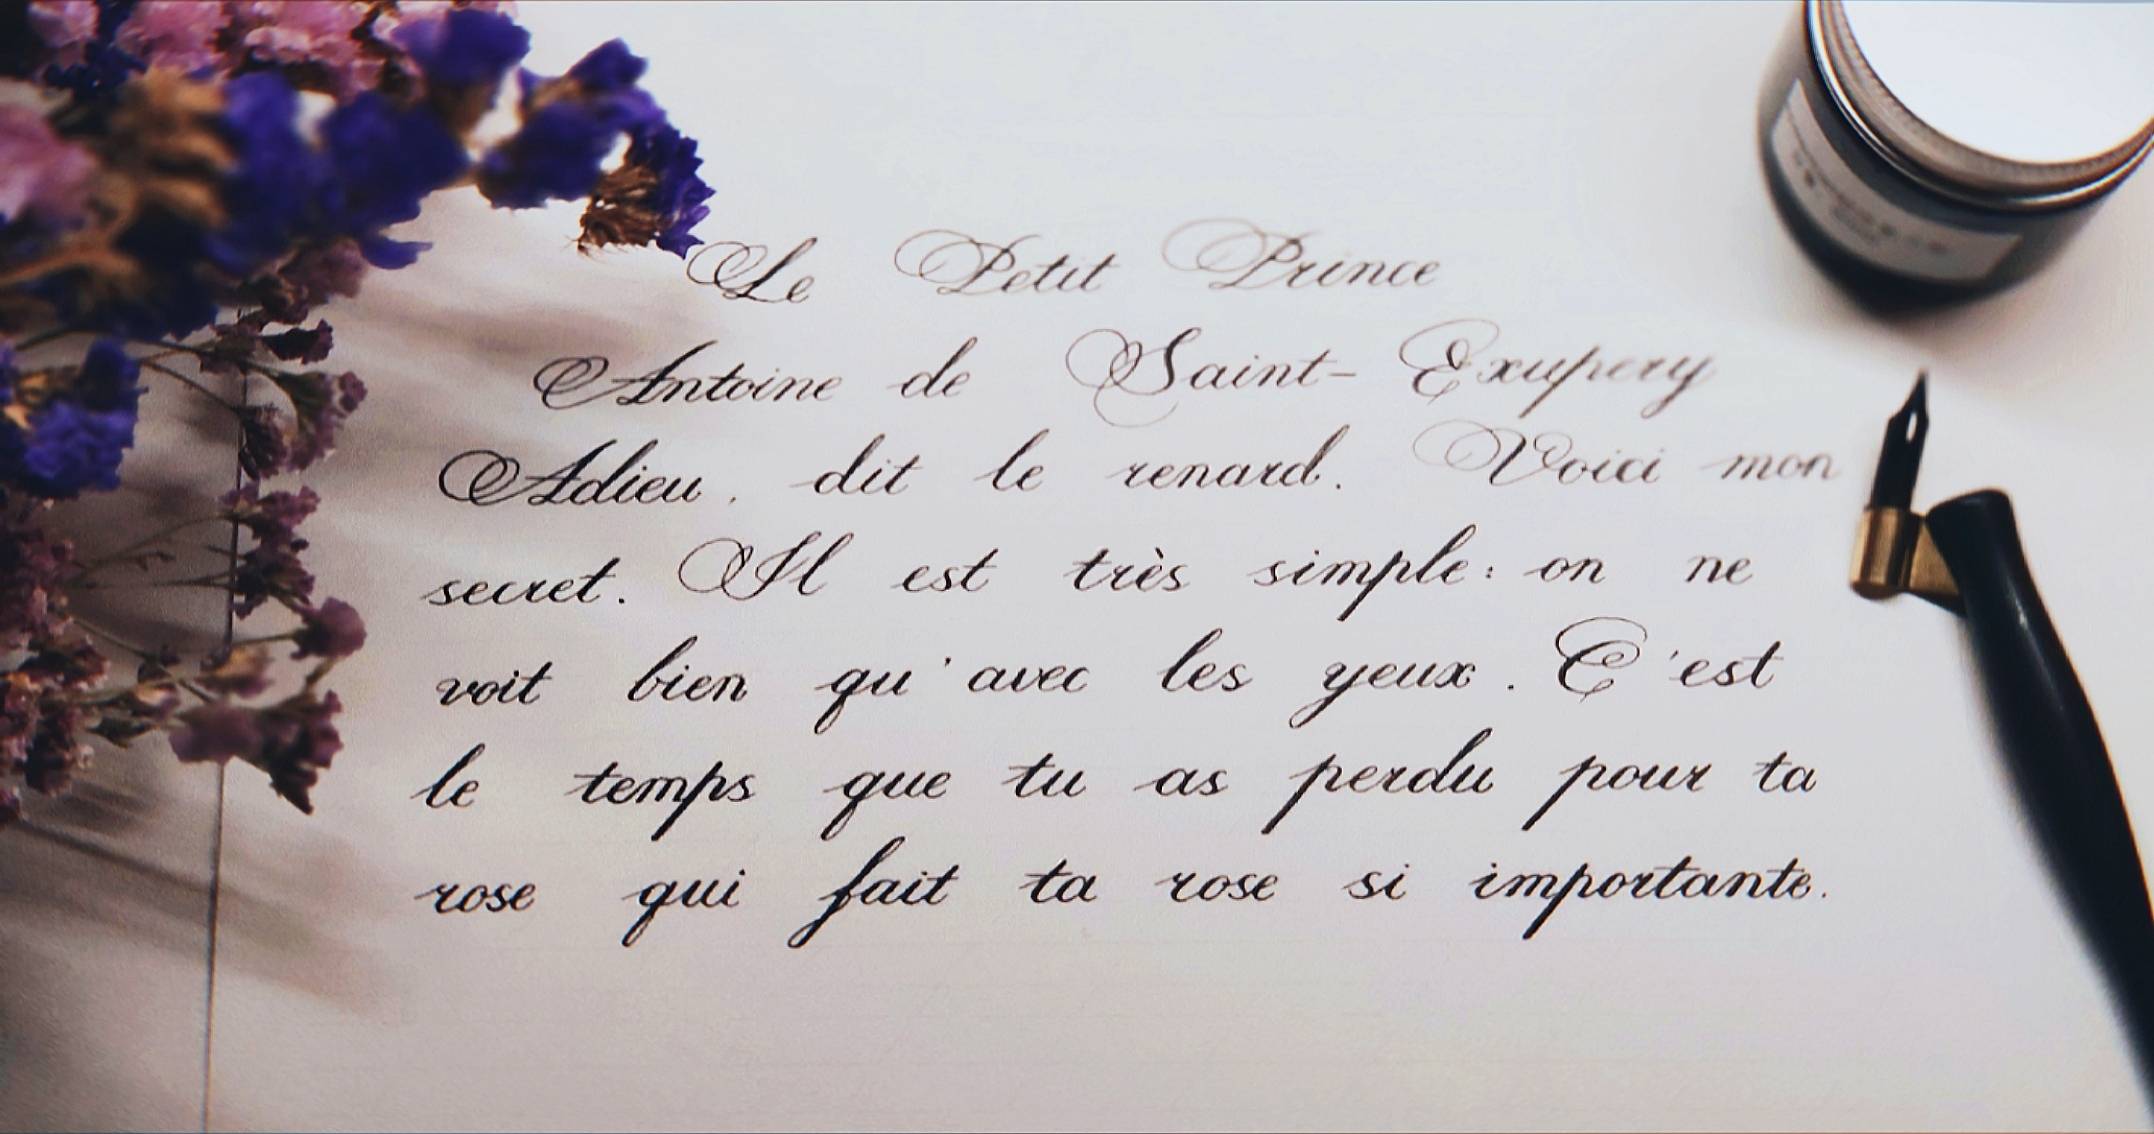 Le Petit Prince
Antoine de Saint-Exupery
Adieu, dit le renard. Voici mon
secret. Il est très simple: on ne
voit bien qu'avec les yeux. C'est
le temps que tu as perdu pour ta
rose qui fait ta rose si importante.